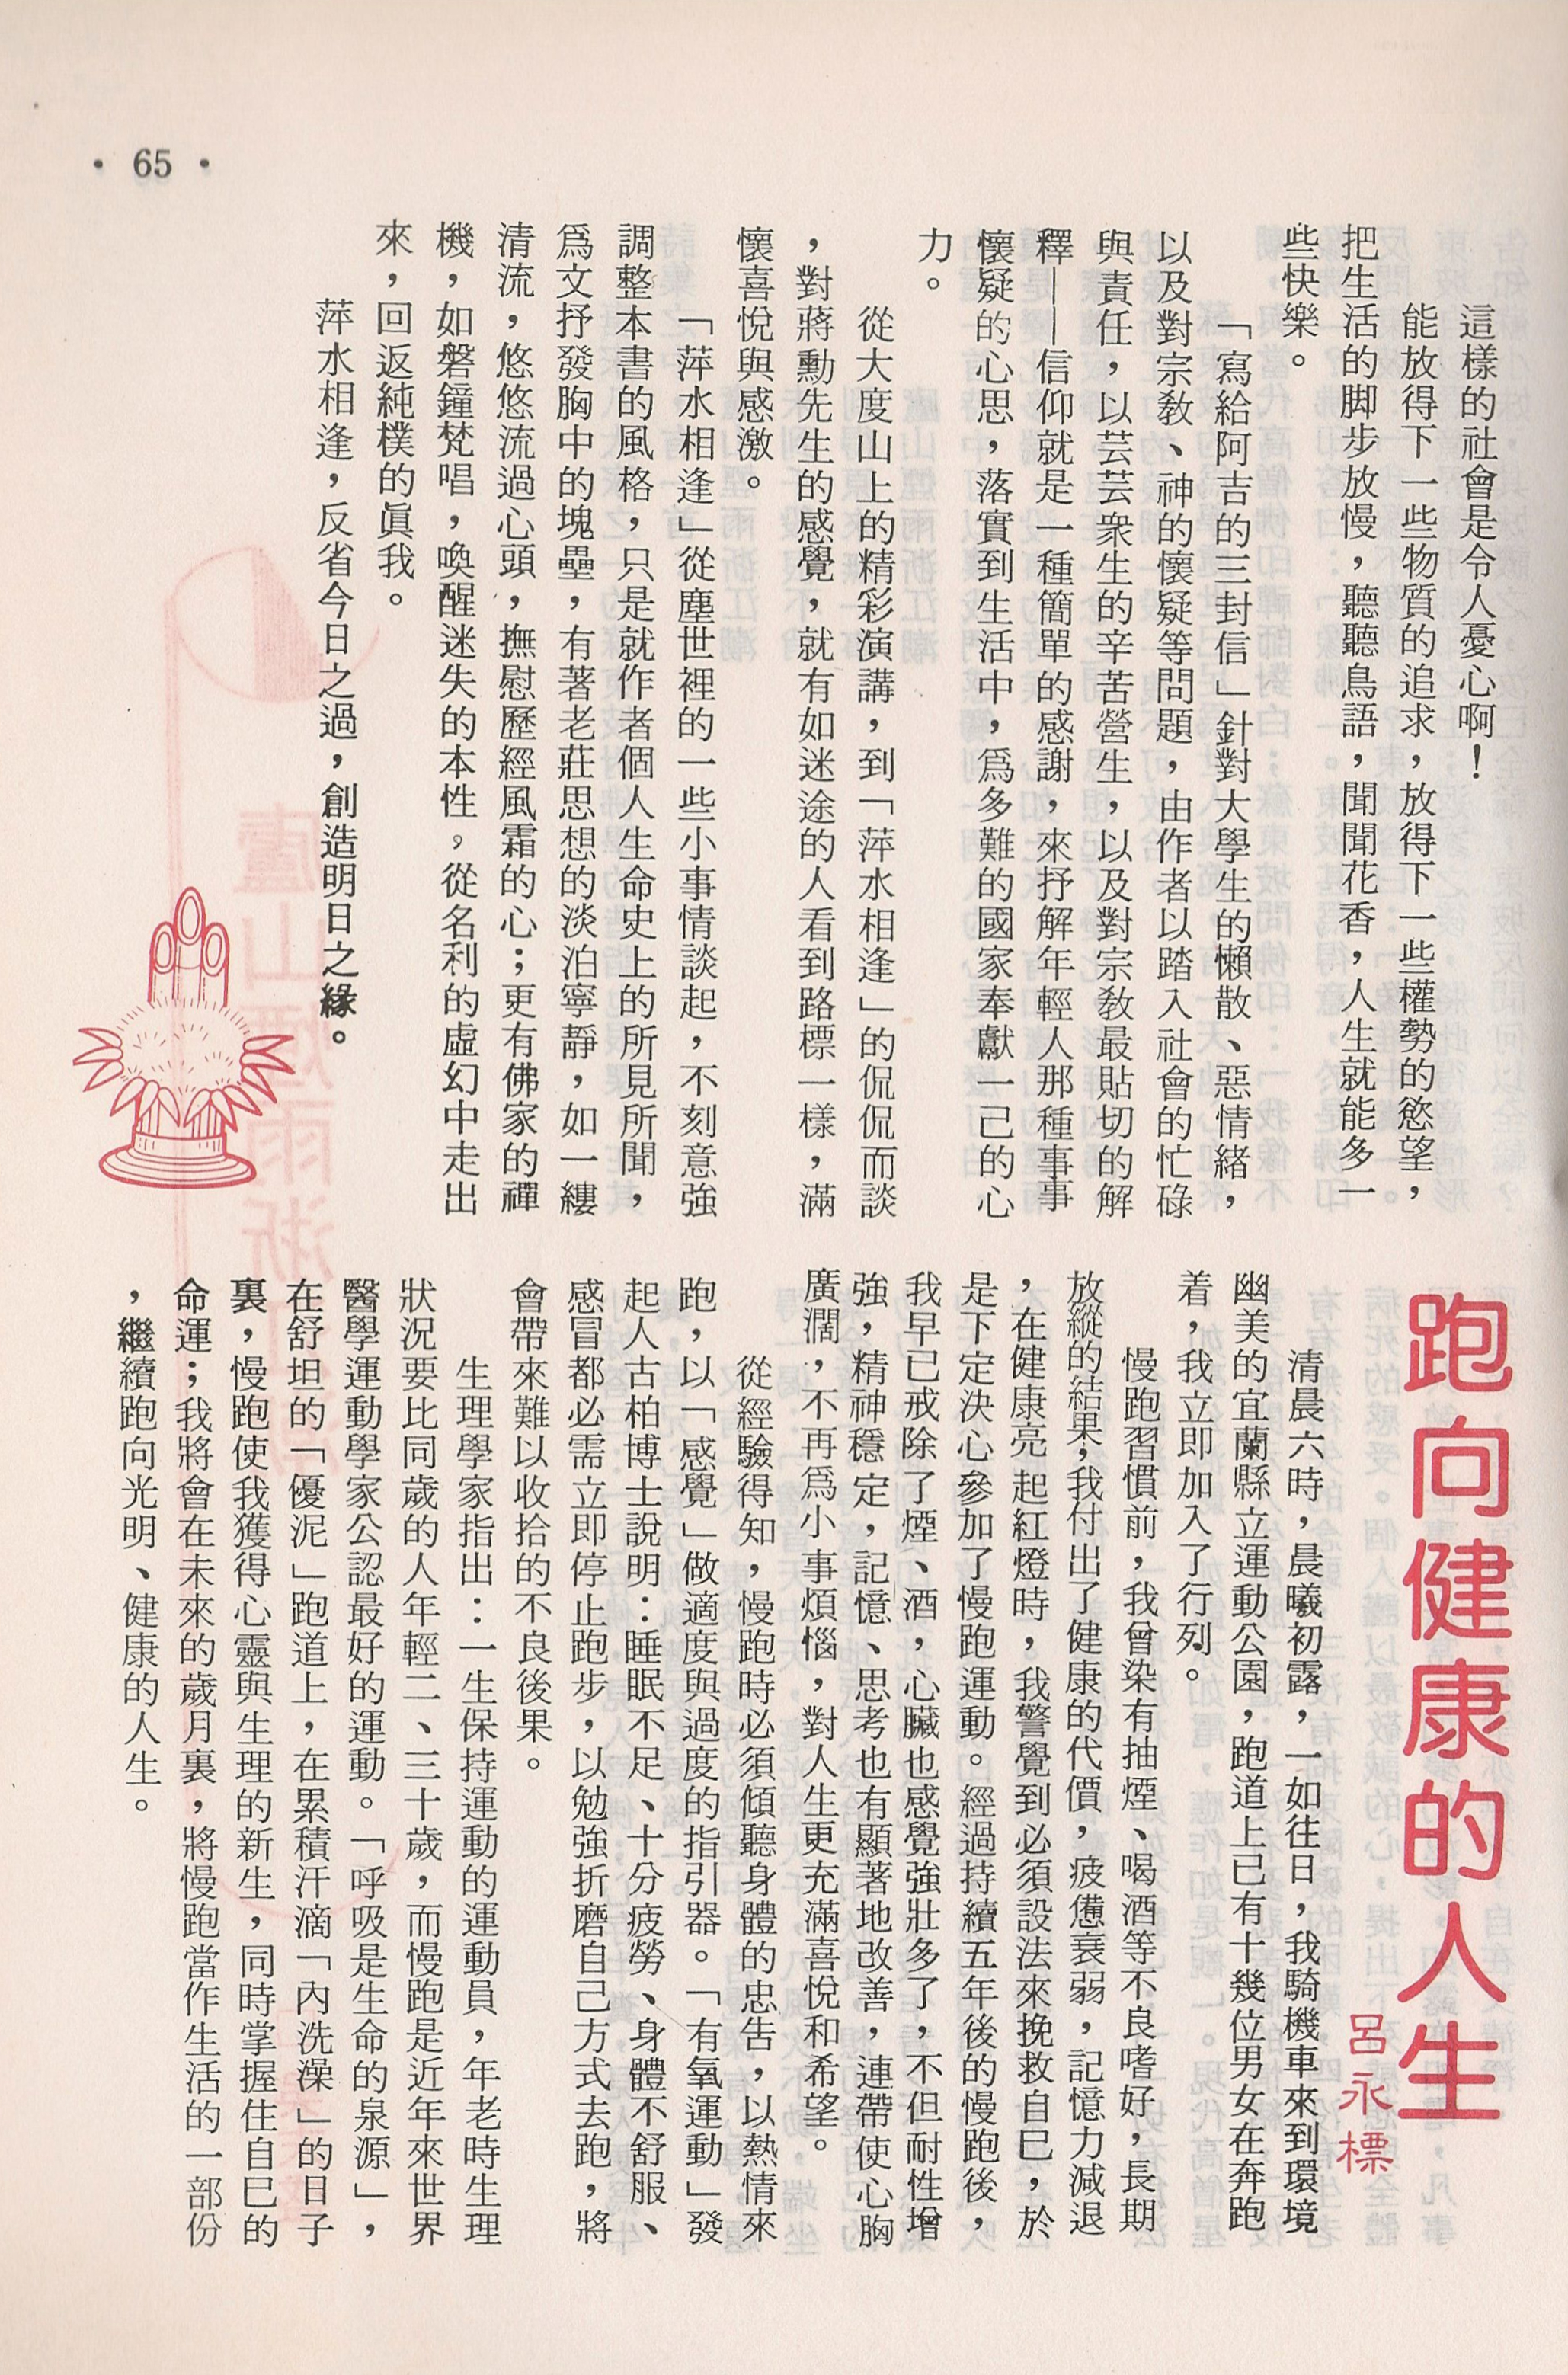 • 65 •
這樣的社會是令人憂心啊！
能放得下一些物質的追求，放得下一些權勢的慾望，
把生活的脚步放慢，聽聽鳥語，聞聞花香，人生就能多一
些快樂。
「寫給阿吉的三封信」針對大學生的懶散、惡情緒，
以及對宗教、神的懷疑等問題，由作者以踏入社會的忙碌
與責任，以芸芸衆生的辛苦營生，以及對宗教最貼切的解
釋——信仰就是一種簡單的感謝，來抒解年輕人那種事事
懷疑的心思，落實到生活中，爲多難的國家奉獻一己的心
力。
從大度山上的精彩演講，到「萍水相逢」的侃侃而談
，對蔣勳先生的感覺，就有如迷途的人看到路標一樣，滿
懷喜悅與感激。
「萍水相逢」從塵世裡的一些小事情談起，不刻意強
調整本書的風格，只是就作者個人生命史上的所見所聞，
爲文抒發胸中的塊壘，有著老莊思想的淡泊寧靜，如一縷
清流，悠悠流過心頭，撫慰歷經風霜的心；更有佛家的禪
機，如磐鐘梵唱，喚醒迷失的本性。從名利的虛幻中走出
來，回返純樸的眞我。
萍水相逢，反省今日之過，創造明日之緣。
跑向健康的人生
呂永標
清晨六時，晨曦初露，一如往日，我騎機車來到環境
幽美的宜蘭縣立運動公園，跑道上已有十幾位男女在奔跑
着，我立即加入了行列。
慢跑習慣前，我曾染有抽煙、喝酒等不良嗜好，長期
放縱的結果，我付出了健康的代價，疲憊衰弱，記憶力減退
，在健康亮起紅燈時，我警覺到必須設法來挽救自已，於
是下定決心參加了慢跑運動。經過持續五年後的慢跑後，
我早已戒除了煙、酒，心臟也感覺強壯多了，不但耐性增
強，精神穩定，記憶、思考也有顯著地改善，連帶使心胸
廣濶，不再爲小事煩惱，對人生更充滿喜悅和希望。
從經驗得知，慢跑時必須傾聽身體的忠告，以熱情來
跑，以「感覺」做適度與過度的指引器。「有氧運動」發
起人古柏博士說明：睡眠不足、十分疲勞、身體不舒服、
感冒都必需立即停止跑步，以勉強折磨自己方式去跑，將
會帶來難以收拾的不良後果。
生理學家指出：一生保持運動的運動員，年老時生理
狀況要比同歲的人年輕二、三十歲，而慢跑是近年來世界
醫學運動學家公認最好的運動。「呼吸是生命的泉源」，
在舒坦的「優泥」跑道上，在累積汗滴「內洗澡」的日子
裏，慢跑使我獲得心靈與生理的新生，同時掌握住自巳的
命運；我將會在未來的歲月裏，將慢跑當作生活的一部份
，繼續跑向光明、健康的人生。